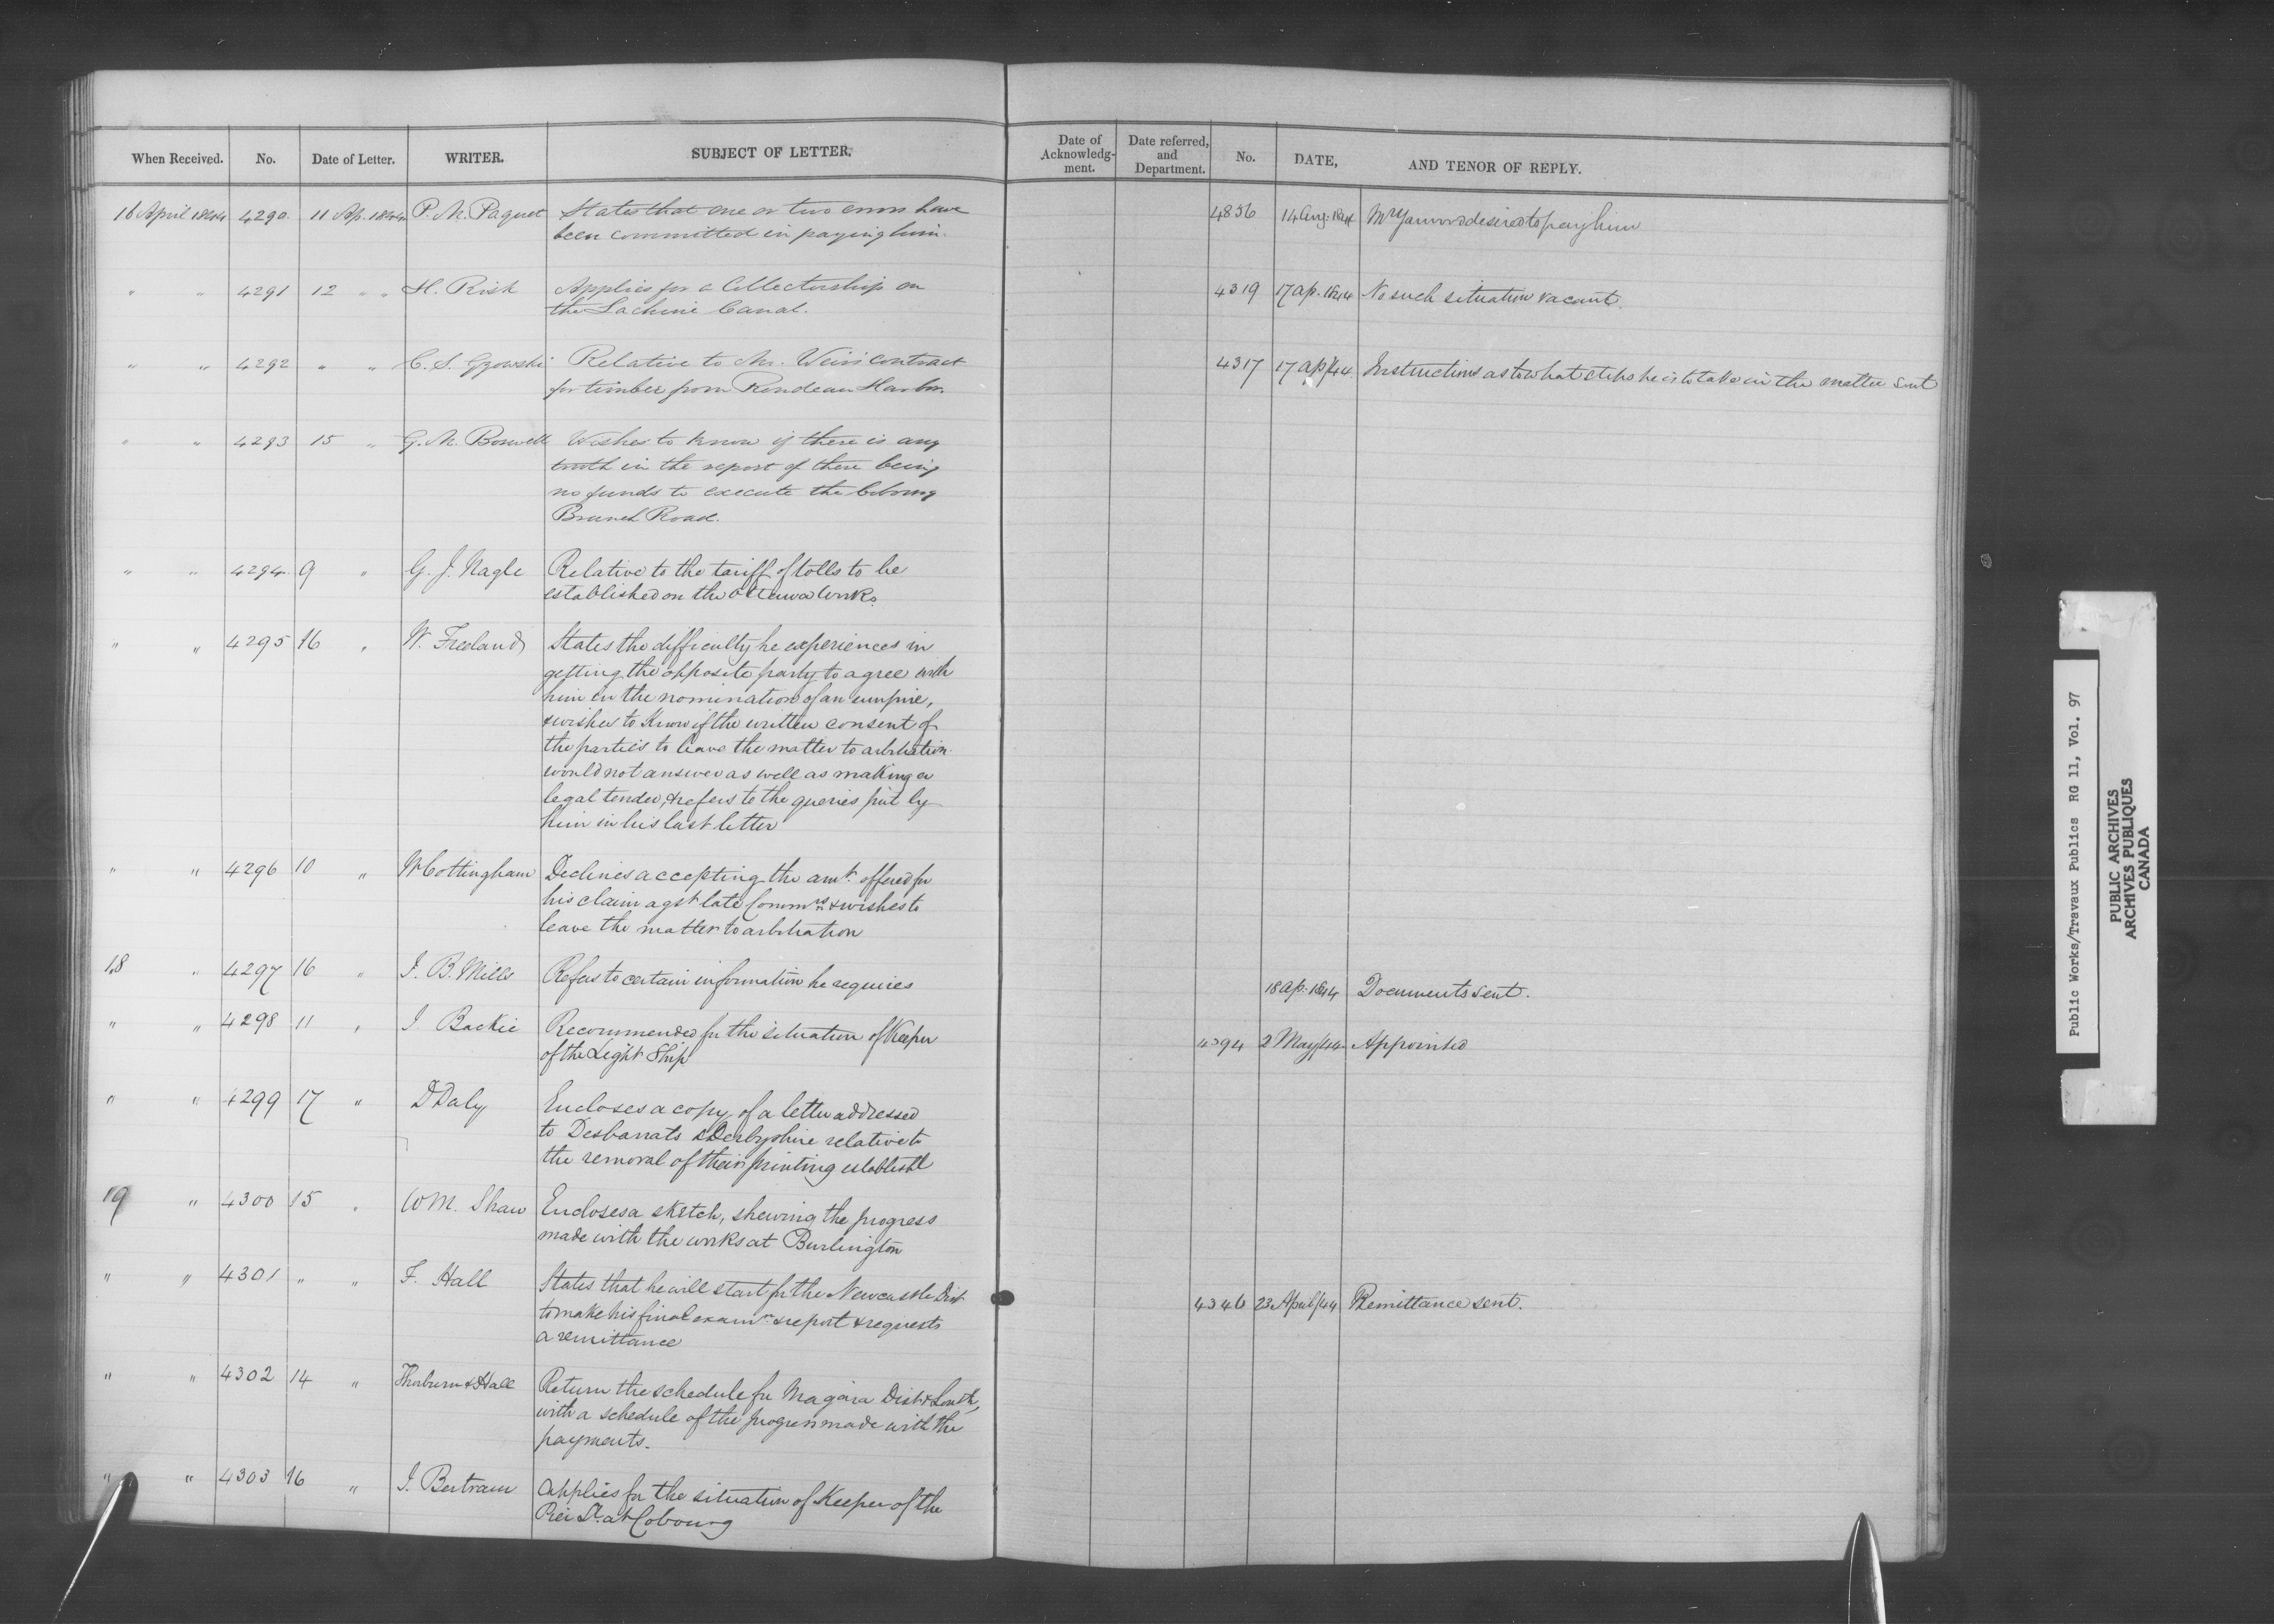 When Received. No. Date of Letter. WRITER. SUBJECT OF LETTER.
Date of Acknowledg-ment. Date referred, and Department. No. DATE, AND TENOR OF REPLY.
16 April 1844 4290. 11 Ap. 1844 P. M. Paquet States that one or two errors have
been committed in paying him.
4856 14 Aug. 1844 Mr Yarwood desired to pay him
" " 4291 12 " " H. Risk Applies for a Collectorship on
the Lachine Canal.
4319 17 ap. 1844 No such situation vacant.
" " 4292 " " C. S. Gzowski Relative to Mr. Weir's contract
for timber from Rondeau Harbr.
4317 17 ap/44. Instructions as to what steps he is to take in the matter sent
" " 4293 15 " G. M. Boswell Wishes to know if there is any
truth in the report of there being
no funds to execute the Cobourg
Branch Road.
" " 4294. 9 " G. J. Nagle Relative to the tariff of tolls to be
established on the Ottawa Works.
" " 4295 16 " W. Freeland States the difficulty he experiences in
getting the opposite party to agree with
him in the nomination of an umpire,
& wishes to know if the written consent of
the parties to leave the matter to arbitration
would not answer as well as making a
legal tender, & refers to the queries put by
him in his last letter
" " 4296 10 " W Cottingham Declines accepting the amt. offered for
his claim agst late Commrs & wishes to
leave the matter to arbitration
18 " 4297 16 " J. B. Mills Refers to certain information he requires
18 ap. 1844 Documents sent.
" " 4298 11 " J Backie Recommended for the situation of Keeper
of the Light Ship
4394 2 May/44 Appointed
" " 4299 17 " D Daly Encloses a copy of a letter addressed
to Desbarats & Derbyshire relative to
the removal of their printing establisht
19 " 4300 15 " W M. Shaw Encloses a sketch, shewing the progress
made with the works at Burlington
" " 4301 " " F. Hall States that he will start for the Newcastle Dist
to make his final examn. & report & requests
a remittance
4346 23 April/44 Remittance sent.
" " 4302 14 " Thorburn & Hall Return the schedule for Niagara Dist &
with a schedule of the progress made with the
payments.
" " 4303 16 " J. Bertram Applies for the situation of Keeper of the
at Cobourg
Public Works/Travaux Publics RG 11, Vol. 97
PUBLIC ARCHIVES
ARCHIVES PUBLIQUES
CANADA